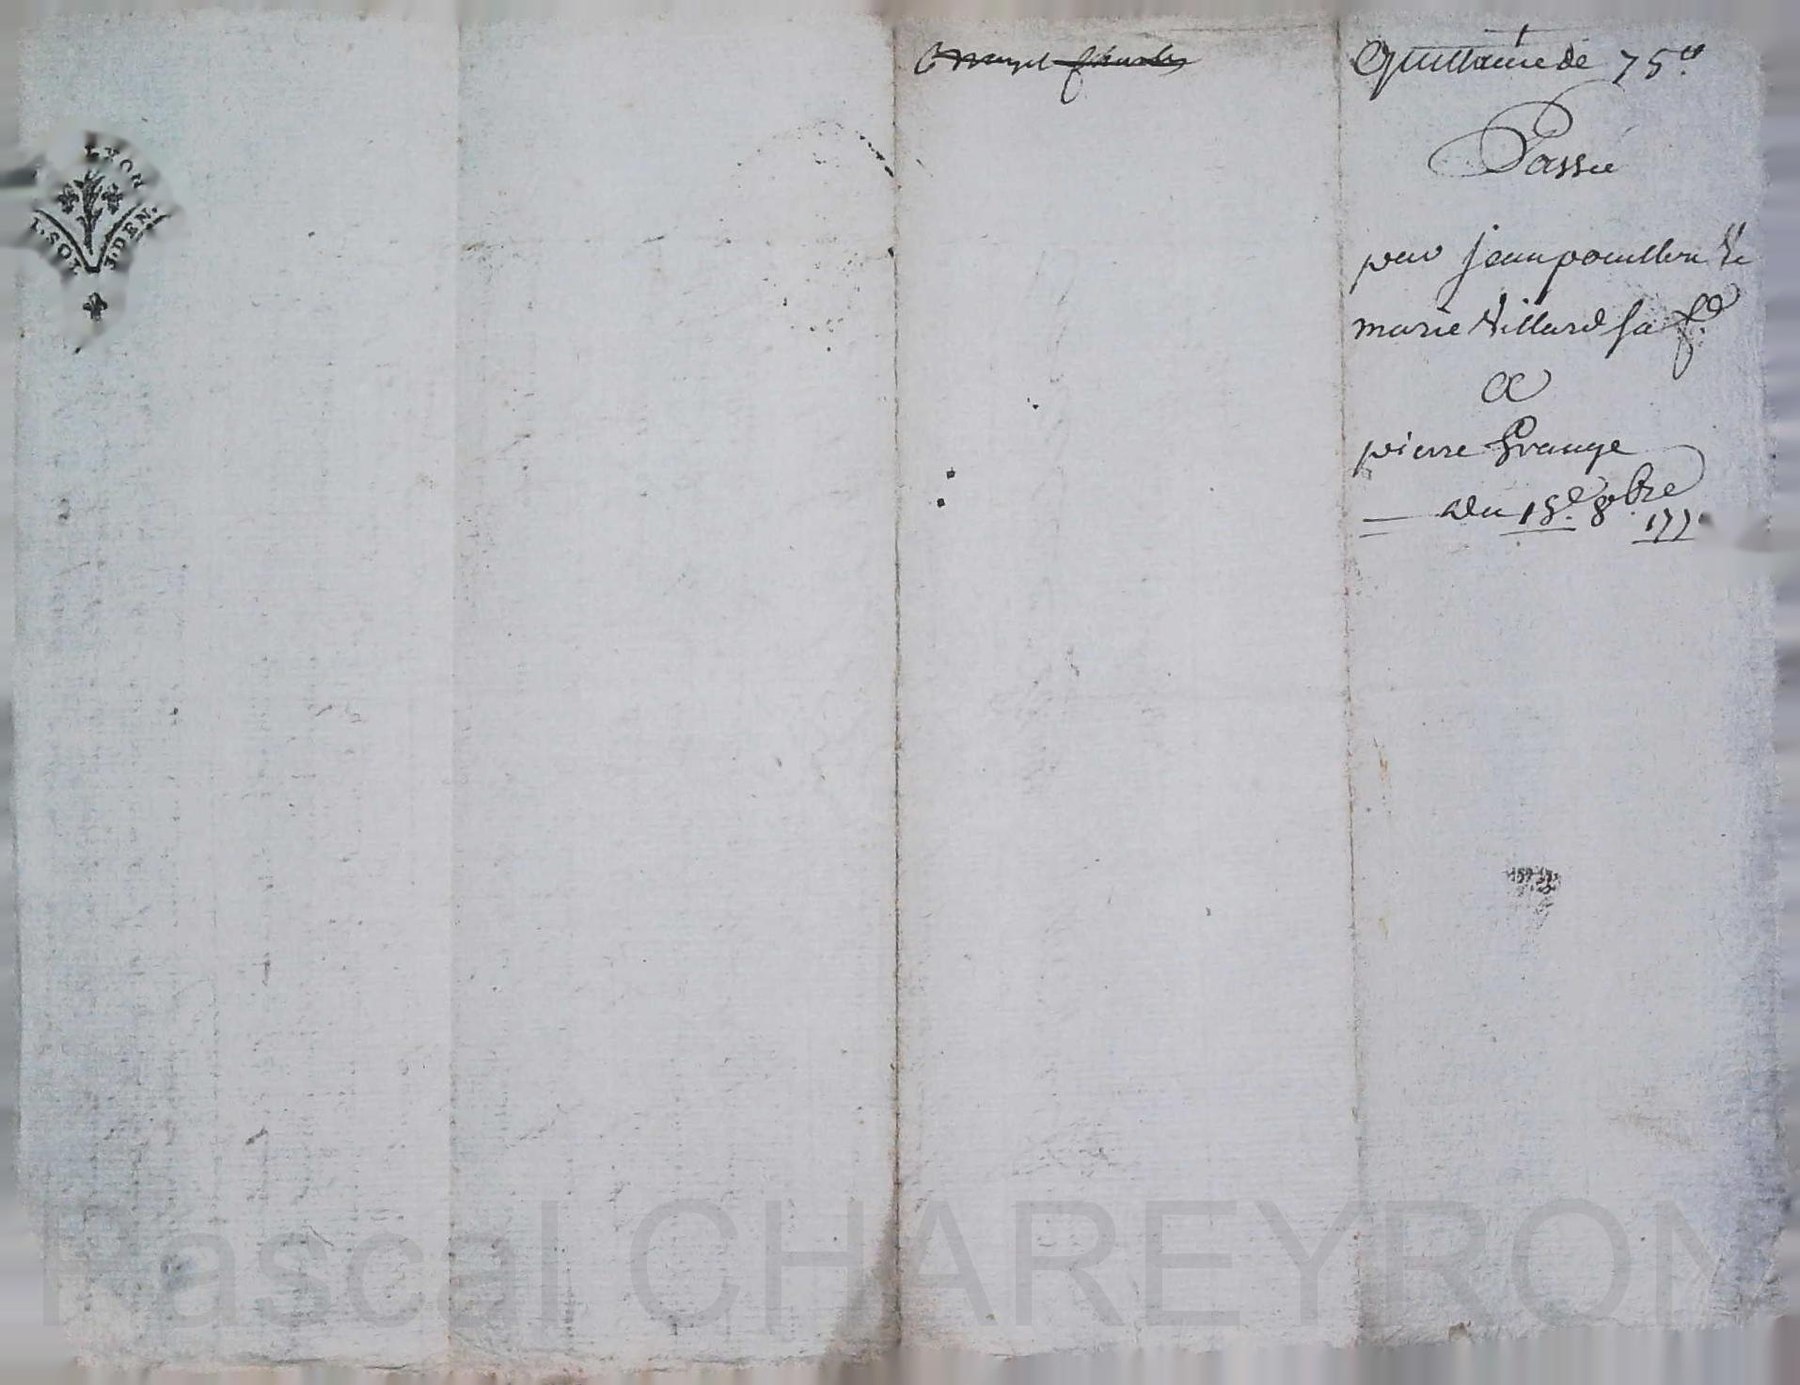 LYON
1.SOL. DEN.
Quittance de 75ᵗᵗ
Passée
par jean pouillon &
marie Villard sa f.ᵉ
a
pierre Grange
du 15.ᵉ 8.bre
177
Pascal CHAREYRON